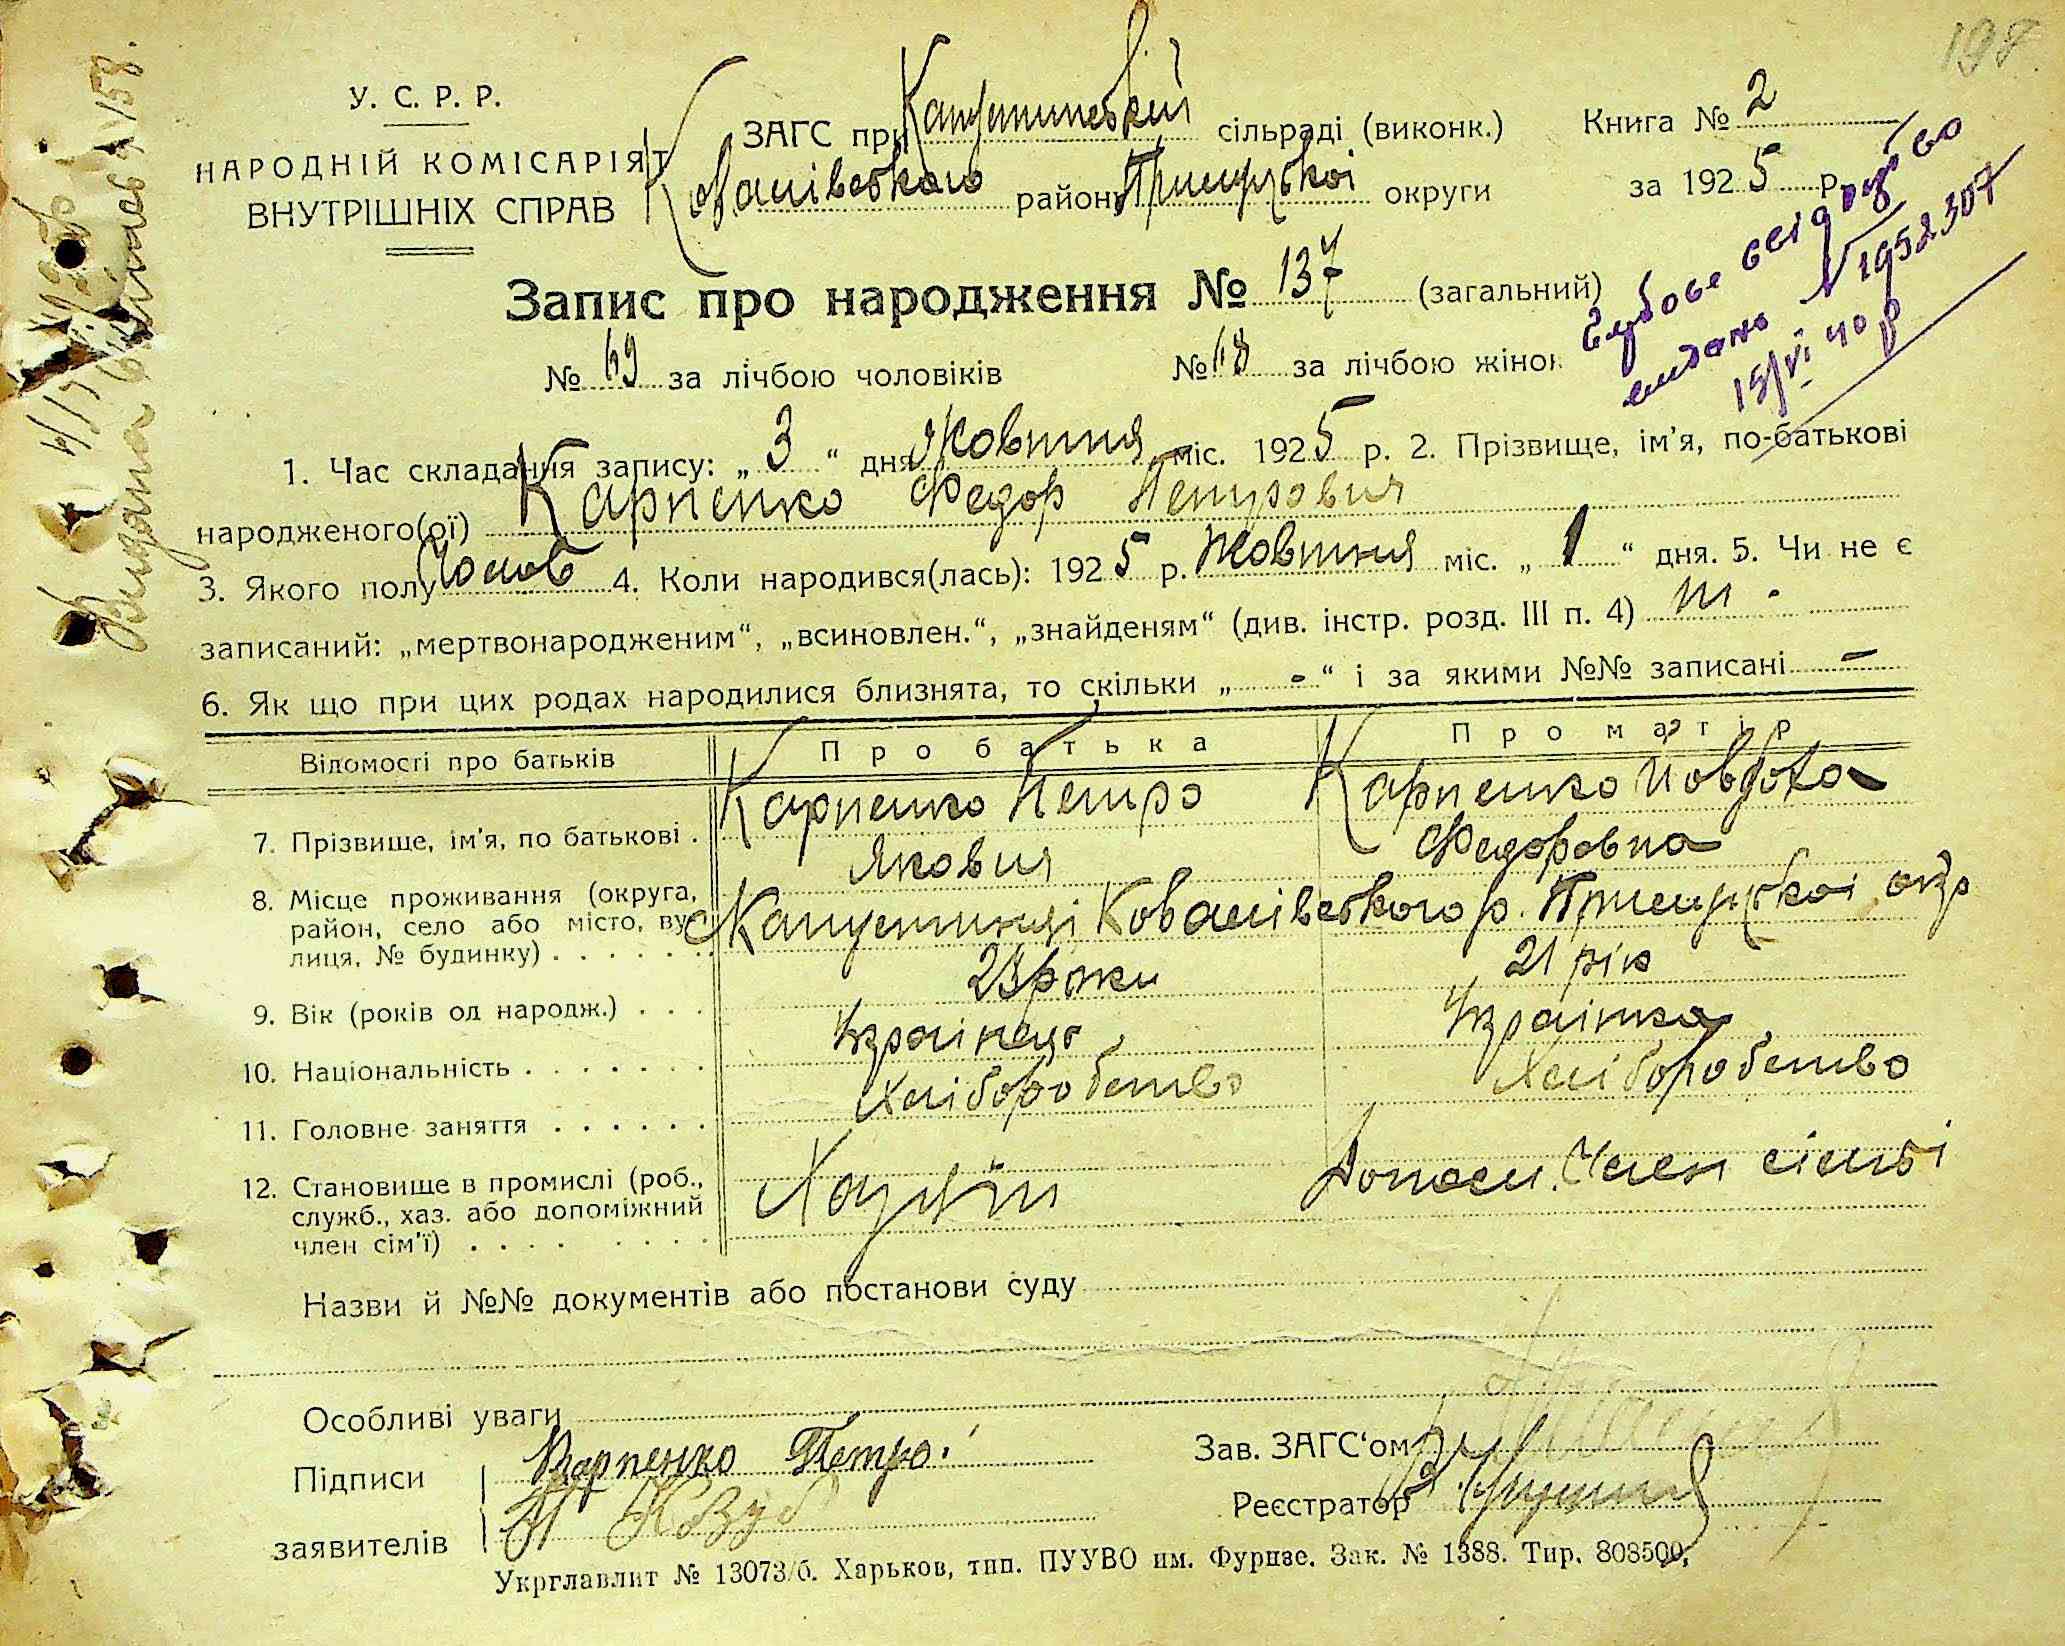 198
У. С. Р. Р.
НАРОДНІЙ КОМІСАРІЯТ
ВНУТРІШНІХ СПРАВ
ЗАГС при Капустинській сільраді (виконк.)
Ковалівського району Прилуцької округи
Книга № 2
за 1925 р.
Запис про народження № 137 (загальний)
№ 69 за лічбою чоловіків № 68 за лічбою жінок
видано № 1952307
15/VI 40 р
1. Час складання запису: „ 3 “ дня Жовтня міс. 1925 р. 2. Прізвище, ім’я, по-батькові
народженого(ої) Карпенко Федор Петрович
3. Якого полу Чолов 4. Коли народився(лась): 1925 р. Жовтня міс. „ 1 “ дня. 5. Чи не є
записаний: „мертвонародженим“, „всиновлен.“, „знайденям“ (див. інстр. розд. III п. 4) ні -
6. Як що при цих родах народилися близнята, то скільки „ - “ і за якими №№ записані -
Відомості про батьків Про батька Про матір
7. Прізвище, ім’я, по батькові . Карпенко Петро Якович Карпенко Йовдоха Федоровна
8. Місце проживання (округа,
район, село або місто, ву-
лиця, № будинку) . . . . . . . с Капустинці Ковалівського р. Прилуцької окр
9. Вік (років од народж.) . . . 23 роки 21 рік
10. Національність . . . . . . . Українець Українка
11. Головне заняття . . . . . . Хліборобство Хліборобство
12. Становище в промислі (роб.,
служб., хаз. або допоміжний
член сім’ї) . . . . . . . . Хазяїн Допом. Член сімьї
Назви й №№ документів або постанови суду
Особливі уваги
Підписи Карпенко Петро.
заявителів П Козуб
Зав. ЗАГС‘ом
Реєстратор
Укрглавлит № 13073/б. Харьков, тип. ПУУВО им. Фрунзе. Зак. № 1388. Тир. 808500.